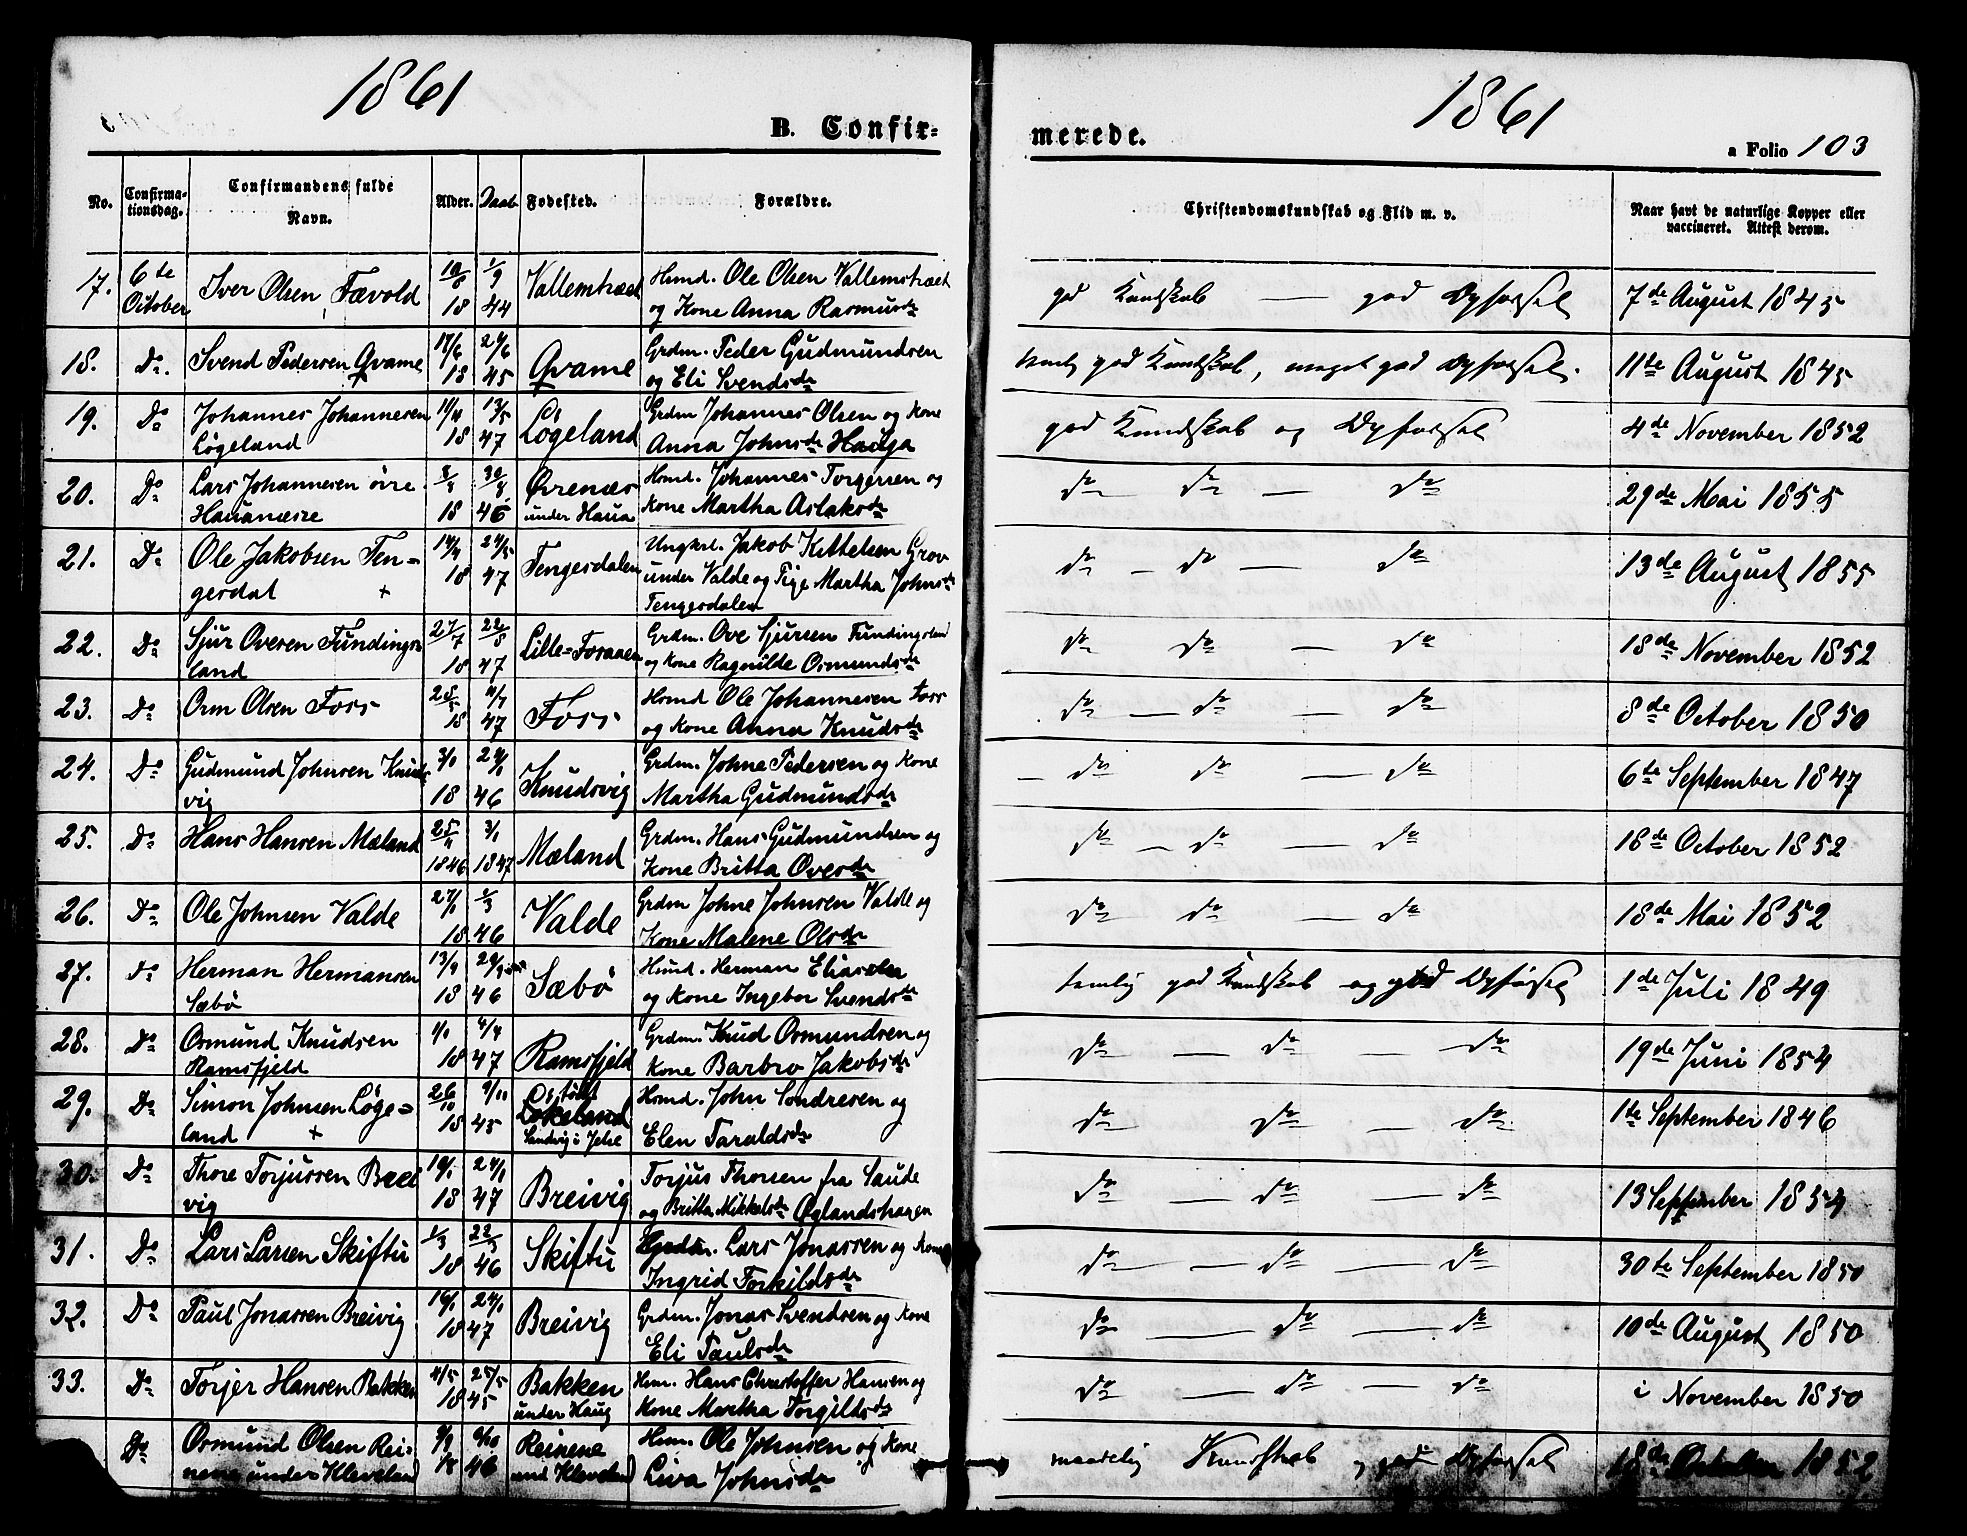 1861
B. Confir=
No.
Confirma-
tionsdag.
Confirmandens fulde
Navn.
Alder.
Daab
Fødested.
Forældre.
17. 6te October Iver Olsen, Fævold 18 1/9 44 Vallemtræet Hmd. Ole Olsen Vallemstræet
og Kone Anna Rasmusdr
18. Do. Svend Pedersen Qvame 17/6 18 29/6 45 Qvame Grdm. Peder Gudmundsen
og Eli Svendsdr
19. Do Johannes Johannesen 18 13/5 47 Løgeland Grdm Johannes Olsen og Kone
Løgeland Anna Johnsdr Hauga
20. Do Lars Johannesen øvre 18 30/8 46 Øvrenæs Hsmd. Johannes Torgersen og
Hauanæsze under Haua Kone Martha Aslaksdr
21. Do Ole Jakobsen Ten= 14/4 18 24/5 47 Tengesdalen Ungkrl. Jakob Kittelsen Grov
gesdal + under Valde og Pige Martha Johnsdr
Tengesdalen
22. Do Sjur Ovesen Fundings- 27/7 18 22/8 47 Lille=Foraaen Grdm. Ove Sjursen Fundingsland
land og Kone Ragnilde Osmundsdr
23. Do Orm Olsen Foss 18 47 Foss Hsmd Ole Johannesen Foss
og Kone Anna Knudsdr
24. Do Gudmund Johnsen Knuds 3/1 18 24/1 46 Knudsvig Grdm. Johne Pedersen og Kone
vig Martha Gudmundsdr
25. Do Hans Hansen Mæland 25/11 1846 3/1 1847 Mæland Grdm. Hans Gudmundsen og
Kone Britta Ovesdr
26. Do Ole Johnsen Valde 27/1 18 1/3 46 Valde Grdm Johne Johnsen Valde og
Kone Malene Olsdr
27. Do Herman Hermansen 13/9 18 46 Sæbø Hmd. Herman Eliassen
Sæbø og Kone Ingebor Svendsdr
28. Do Osmund Knudsen 1/1 18 4/4 47 Ramsfjeld Grdm. Knud Osmundsen og
Ramsfjeld Kone Barbro Jakobsdr
29. Do Simon Johnsen Løge= 26/10 18 9/11 45 Løkeland Hsmd. John Sondresen og
land + Sandvig i Jelse Elen Taraldsdr
30. Do Thore Torjussen Bræ 18 24/1 47 Breivig Torjus Thorsen fra Saude
vig og Britta Mikkelsdr Øglandshagen
31. Do Lars Larsen Skiftu 1/3 18 22/3 46 Skiftu Lars Jonassen og Kone
Ingrid Torkildsdr
32. Do Paul Jonassen Breivig 16/1 18 24/1 47 Breivig Grdm. Jonas Svendsen og Kone
Eli Paulsdr
33. Do Torjer Hansen Bakken 4/5 18 25/5 45 Bakken Hsm. Hans Christoffer Hansen og
under Haug Kone Martha Torgilsdr
Do Osmund Olsen Rei- 9/9 18 46 Reinene Hsm. Ole Johnsen og Kone
nene under Kleveland und Kleveland Liva Johnsdr
1861
merede.
a Folio 103
Christendomskundskab og Flid m. v.
Naar havt de naturlige Kopper eller
vaccineret. Attest derom.
gd Kundskab — god Opførsel 7de August 1845
god Kundskab, meget god Opførsel. 11te August 1845
god Kundskab og Opførsel 4de November 1852
do do — do 29de Mai 1855
do — do — do 13de August 1855
do do — do 18de November 1852
do — do — do 8de October 1850
— do do — do 6te September 1847
do — do — do 18de October 1852
do do — do 18de Mai 1852
temlig god Kundskab og god Opførsel 1de Juli 1849
do — do — do 19de Juni 1854
do do — do 1te September 1846
do — do — do 13 September 1854
do — do — do 30te September 1850
do — do — do 10de August 1850
do — do — do i November 1850
maadelig Kundskab, god Opførsel 18de October 1852